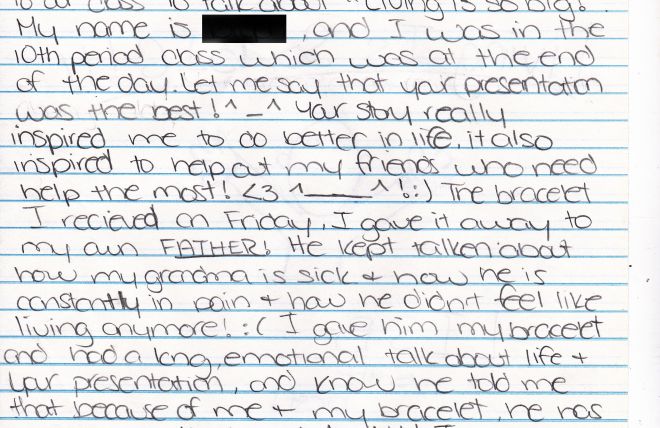 to our class to talk about "Living is so big!"
My name is , and I was in the
10th period class which was at the end
of the day. Let me say that your presentation
was the best! ^_^ Your stoy really
inspired me to do better in life, it also
inspired to help out my friends who need
help the most! <3 ^_____^ !:) The bracelet
I recieved on Friday, I gave it away to
my own FATHER! He kept talken about
how my grandma is sick + how he is
constantly in pain + how he didn't feel like
living anymore! :( I gave him my bracelet
and had a long, emotional talk about life +
your presentation, and know he told me
that because of me + my bracelet, he has